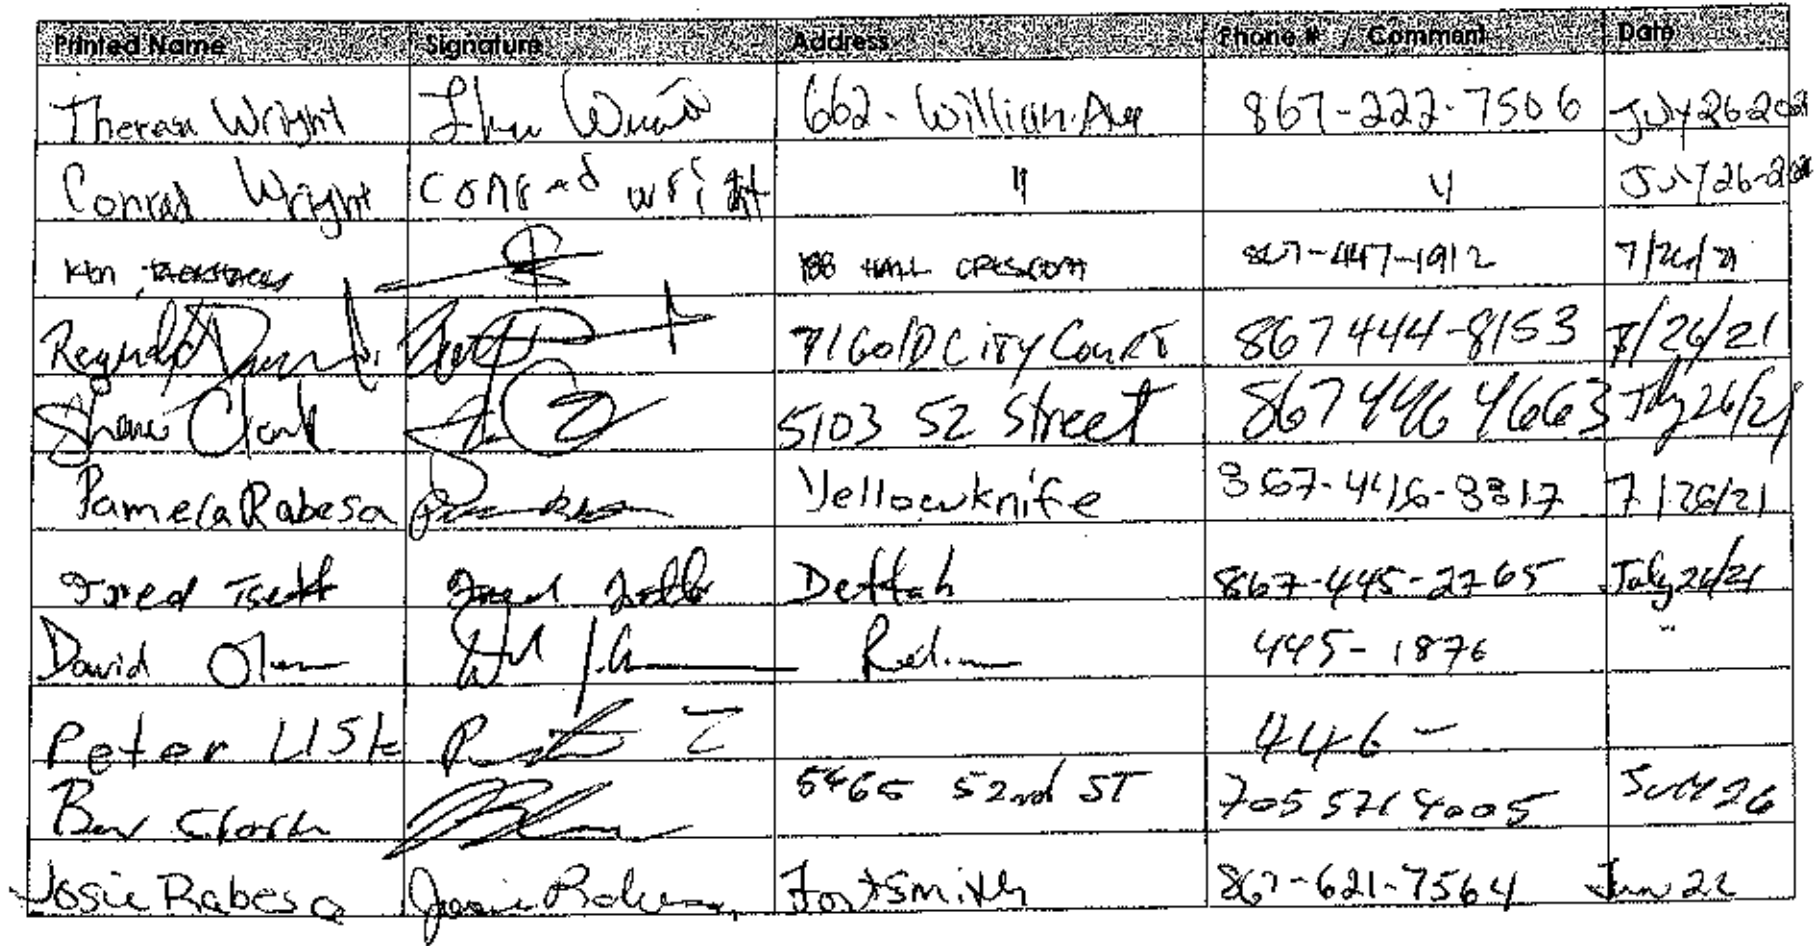 Printed Name Signature Address Phone # / Comment Date
Theresa Wright 662 - William Ave 867-222-7506 July 26-2021
Conrad Wright Conrad wright " " July 26-2021
Ken 188 HALL CRESCENT 867-447-1912 7/26/21
Reginald 71 GolD CiTy CourT 867 444-8153 7/26/21
Shane Clark 5103 52 Street 867 446 4663 July 26/21
Pamela Rabesca Yellowknife 867-446-8317 7/26/21
Fred Dettah 867-445-2765 July 26/21
David 445-1876 "
Peter 446 -
5465 52nd ST 705 571 4005 July 26
Josie Rabesca Fort Smith 867-621-7564